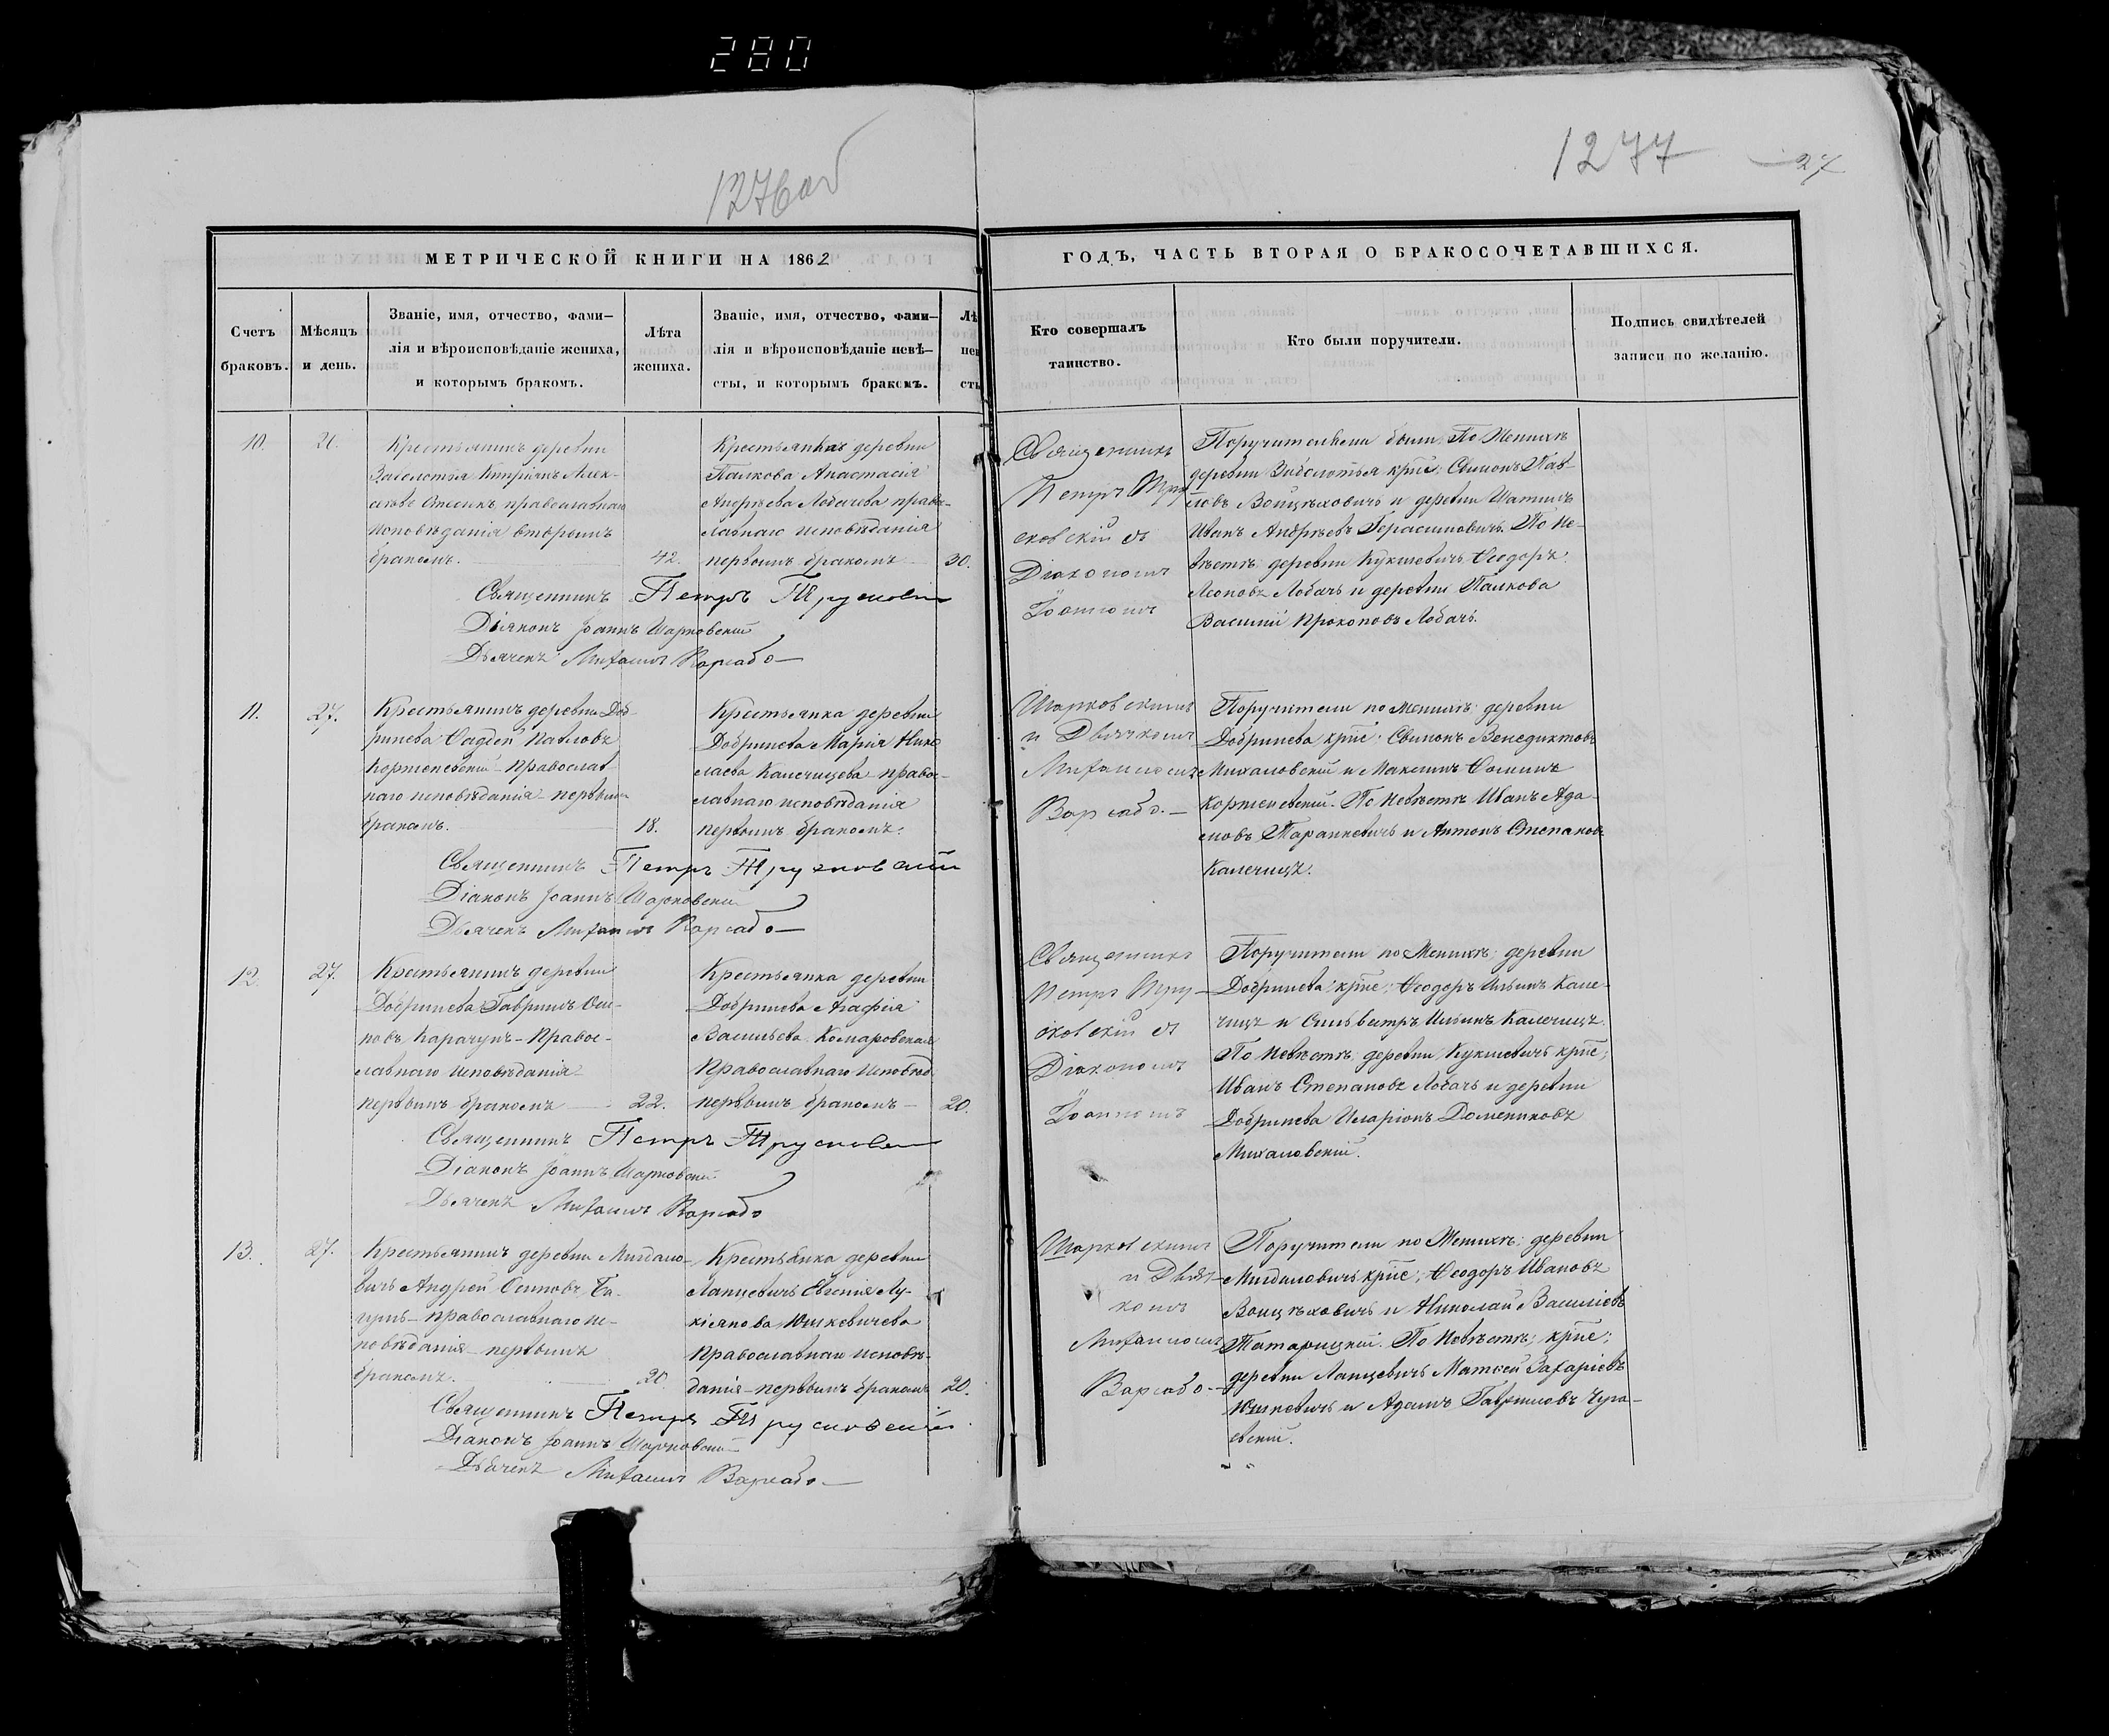 280
1276об
1277
27
МЕТРИЧЕСКОЙ КНИГИ НА 1862
ГОДЪ, ЧАСТЬ ВТОРАЯ О БРАКОСОЧЕТАВШИХСЯ.
Счетъ браковъ.
Мѣсяцъ и день.
Званіе, имя, отчество, фами-
лія и вѣроисповѣданіе жениха,
и которымъ бракомъ.
Лѣта
жениха.
Званіе, имя, отчество, фами-
лія и вѣроисповѣданіе невѣ-
сты, и которымъ бракомъ.
Лѣ
нев
сты
Кто совершалъ
таинство.
Кто были поручители.
Подпись свидѣтелей
записи по желанію.
10.
Крестьянинъ деревни
Заболотья
православнаго
исповѣданія вторымъ
бракомъ.
42.
Крестьянка деревни
Палкова Анастасія
Андрѣева Лобачева право-
славнаго исповѣданія
первымъ бракомъ
30.
Священникъ
Петръ
сковскій съ
Діакономъ
Іоанномъ
Поручителями были: По Женихѣ
деревни Заболотья крте: Симонъ Пав-
ловъ Войцѣховичъ и деревни
Иванъ Андрѣевъ Герасимовичъ. По Не-
вѣстѣ деревни Кукшевичъ Ѳеодоръ
Лобачъ и деревни Палкова
Василій Прокоповъ Лобачъ.
Священникъ Петръ
Діаконъ Іоаннъ Шарковскій
Дьячекъ Михаилъ Варсабо
11.
27.
Крестьянинъ деревни Доб-
ринева Ѳадей Павловъ
Корженевскій Православ-
наго исповѣданія первымъ
бракомъ.
18.
Крестьянка деревни
Добринева Марія Нико
лаева Калечицева право-
славнаго исповѣданія
первымъ бракомъ.
Шарковскимъ
и Дьячкомъ
Михаиломъ
Варсабо.
Поручители по Женихѣ: деревни
Добринева крте: Симонъ Венедиктовъ
Михаловскій и Максимъ Ѳоминъ
Корженевскій. По Невѣстѣ Иванъ Ада-
мовъ Таранкевичъ и Антонъ Степановъ
Калечицъ.
Священникъ Петръ Трусковскій
Діаконъ Іоаннъ Шарковскій
Дьячекъ Михаилъ Варсабо
12.
27.
Крестьянинъ деревни
Добринева Гавріилъ Оси-
повъ Карачунъ Правос-
лавнаго Исповѣданія
первымъ бракомъ
22.
Крестьянка деревни
Добринева Агафія
Васильева Комаровская
Православнаго Исповѣд.
первымъ бракомъ
20.
Священникъ
Петръ Тру-
сковскій съ
Діакономъ
Іоанномъ
Поручители по Женихѣ: деревни
Добринева крте: Ѳеодоръ Ильинъ Кале-
чицъ и Сильвестръ Ильинъ Калечицъ.
По Невѣстѣ: деревни Кукшевичъ крте:
Иванъ Степановъ Лобачъ и деревни
Добринева Иларіонъ Доменековъ
Михаловскій.
Священникъ Петръ
Діаконъ Іоаннъ Шарковскій
Дьячекъ Михаилъ Варсабо
13.
27.
Крестьянинъ деревни Мигдало-
вичъ Андрей Осиповъ
православнаго ис-
повѣданія первымъ
бракомъ.
20.
Крестьянка деревни
Ланцевичъ Евгенія Лу-
кіянова Юшкевичева
Православнаго исповѣ-
данія первымъ бракомъ
20.
Шарковскимъ
и Дьяч-
комъ
Михаиломъ
Варсабо
Поручители по Женихѣ: деревни
Мигдаловичъ крте: Ѳеодоръ Ивановъ
Войцѣховичъ и Николай Василіевъ
Татарицкій. По Невѣстѣ: крте:
деревни Ланцевичъ Матѳей Захаріевъ
Юшкевичъ и Адамъ Гавриловъ
Священникъ Петръ Трусковскій
Діаконъ Іоаннъ Шарковскій
Дьячекъ Михаилъ Варсабо